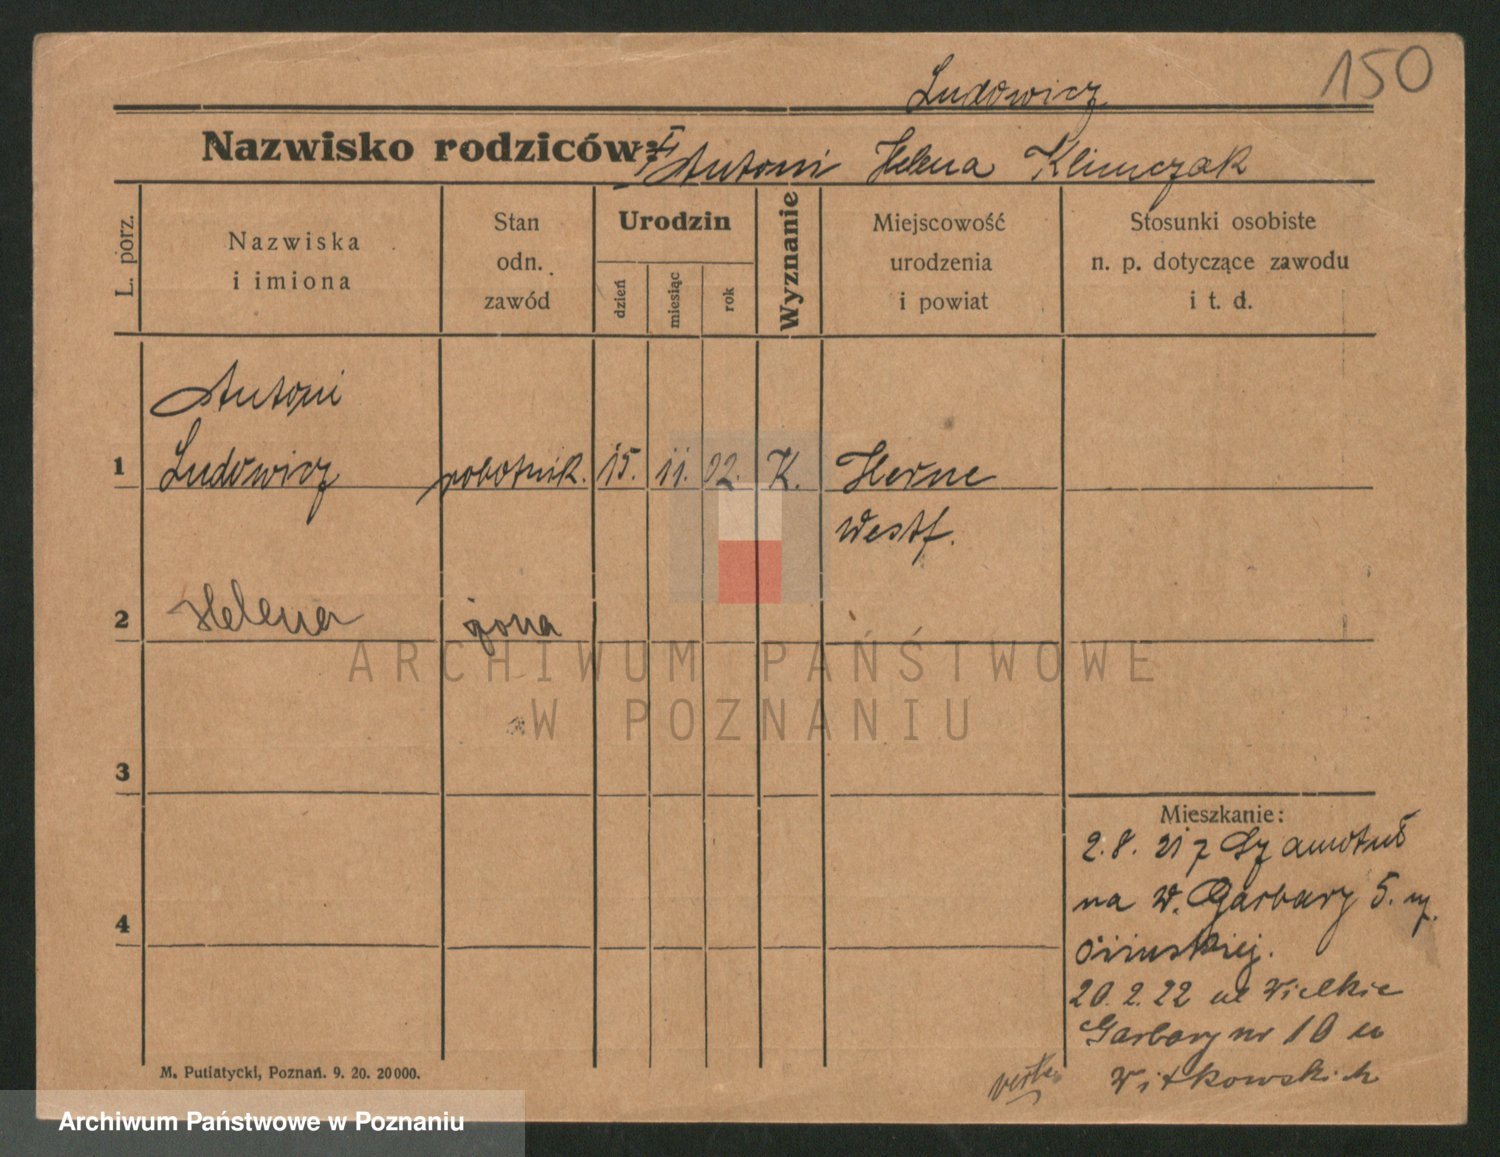 150
Ludowicz
Nazwisko rodziców:
Antoni Helena Klimczak
L. porz.
Nazwiska
i imiona
Stan
odn.
zawód
Urodzin
dzień
miesiąc
rok
Wyznanie
Miejscowość
urodzenia
i powiat
Stosunki osobiste
n. p. dotyczące zawodu
i t. d.
Antoni
1 Ludowicz robotnik. 15. 11. 02. K. Herne
Westf.
2 Helena żona
ARCHIWUM PAŃSTWOWE
W POZNANIU
3
Mieszkanie:
2.8. 21 z Szamotuł
na W. Garbary 5. u
20.2.22 ul Wielkie
4
Garbary nr 10 u
Witkowskich
M. Putiatycki, Poznań. 9. 20. 20000.
Archiwum Państwowe w Poznaniu